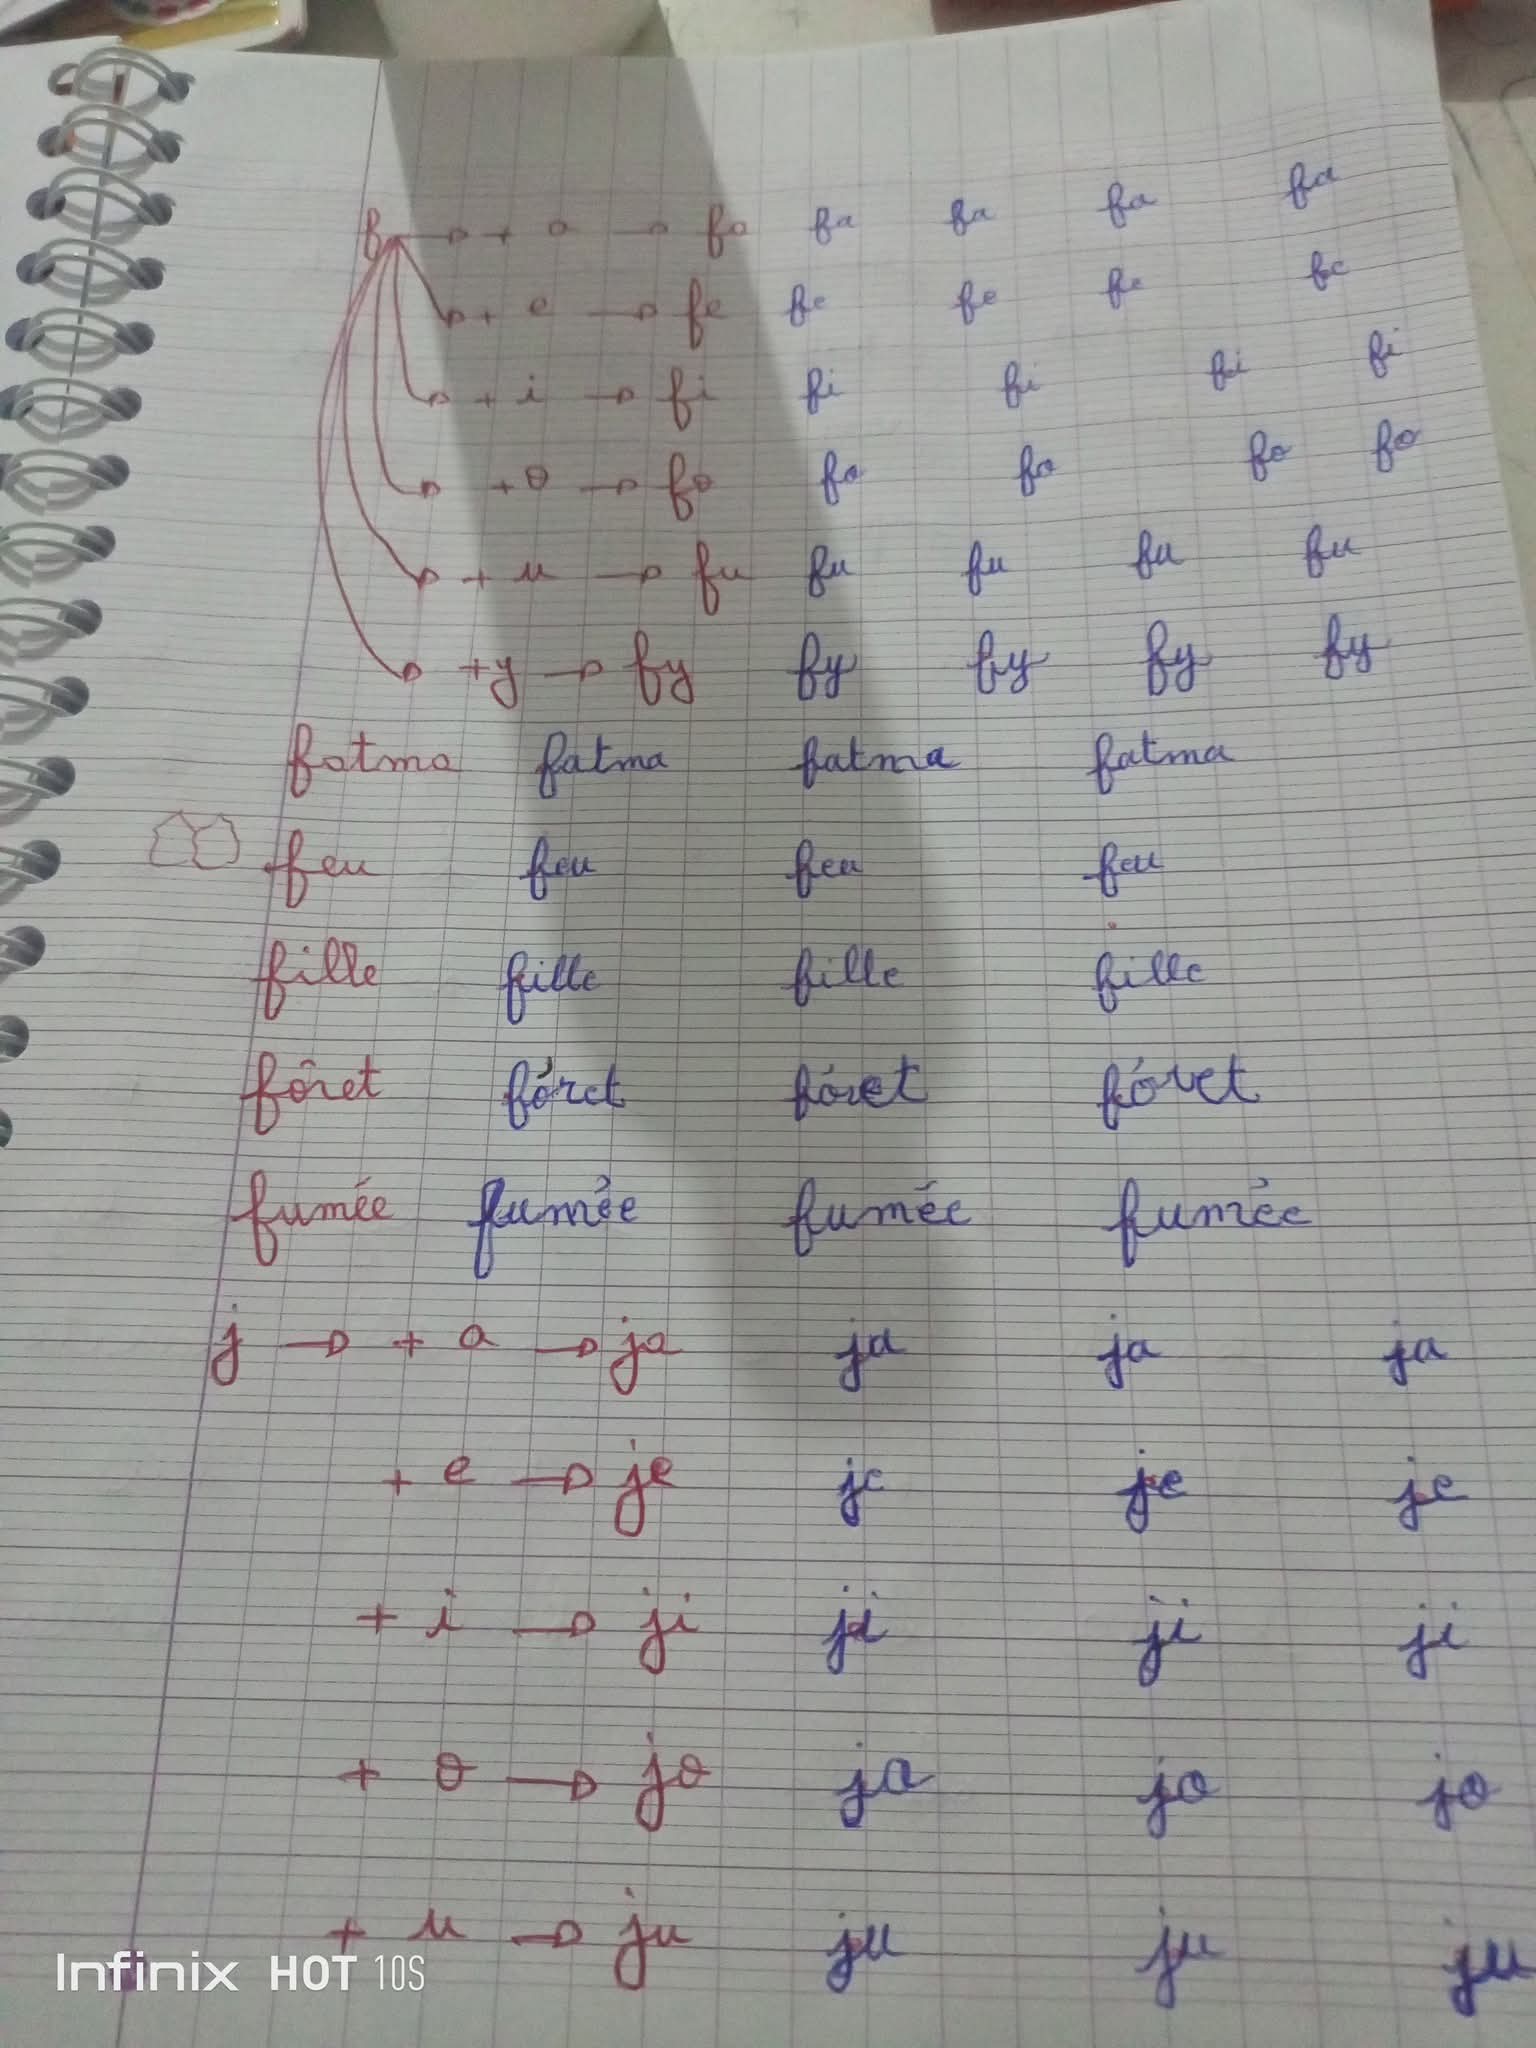 f → + a → fa fa fa fa fa
+ e → fe fe fe fe fe
+ i → fi fi fi fi fi
+ o → fo fo fo fo fo
→ + u → fu fu fu fu fu
→ + y → fy fy fy fy fy
fatma fatma fatma fatma
feu feu feu feu
fille fille fille fille
fôret fóret fóret fóret
fumée fumée fumée fumée
j → + a → ja ja ja ja
+ e → je je je je
+ i → ji ji ji ji
+ o → jo ja jo jo
+ u → ju ju ju ju
Infinix HOT 10S